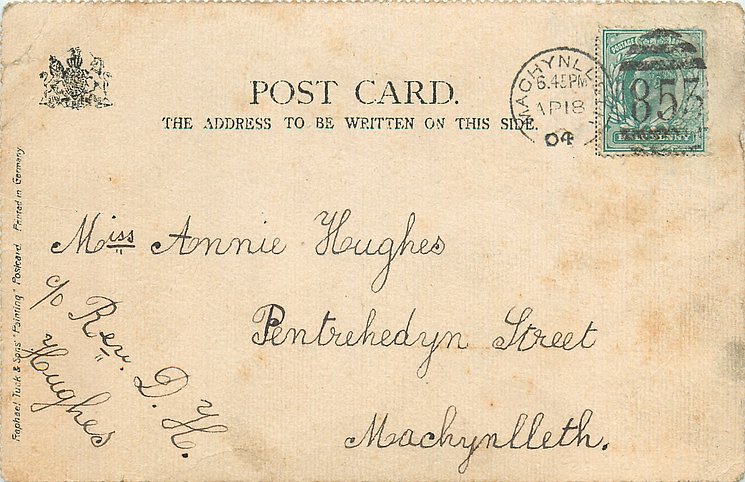 POST CARD.
THE ADDRESS TO BE WRITTEN ON THIS SIDE.
MACHYNLL
6.45PM
AP 18
04
POSTAGE
853
HALFPENNY
Miss Annie Hughes
Pentrehedyn Street
Machynlleth.
c/o Rev. D. H.
Hughes
Raphael Tuck & Sons' "Painting" Postcard Printed in Germany